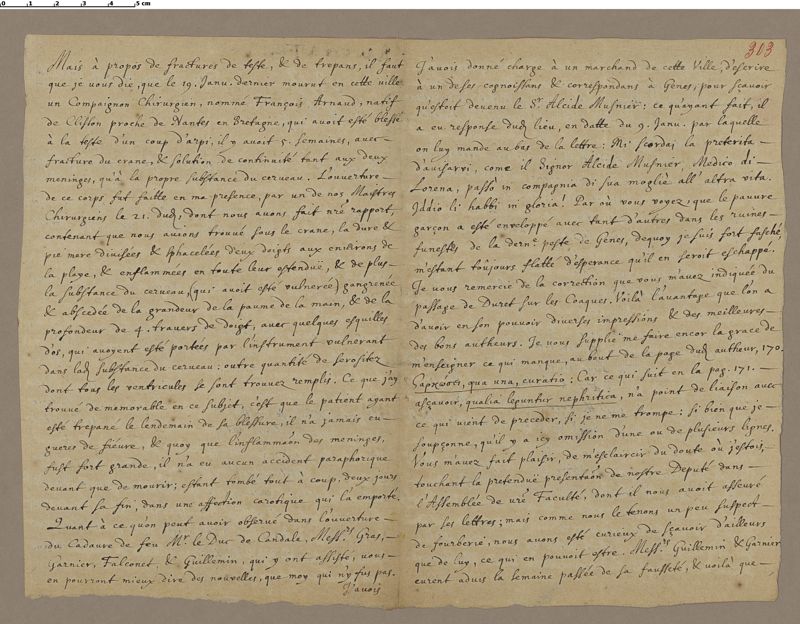 0 1 2 3 4 5 cm
313
Mais à propos de fractures de teste, & de trepans, il faut
que je vous die, que le 19. Janu. dernier mourut en cette ville
un Compagnon Chirurgien, nommé François Arnaud, natif
de Clisson proche de Nantes en Bretagne, qui avoit esté blessé
à la teste d'un coup d'arpi, il y avoit 5. semaines, avec
fracture du crane, & solution de continuité tant aux deux
meninges, qu'à la propre substance du cerveau. L'ouverture
de ce corps fut faitte en ma presence, par un de nos Maistres
Chirurgiens le 21. dud, dont nous avons fait nre rapport,
contenant que nous avions trouvé sous le crane, la dure &
pie mere divisées & sphacelées deux doigts aux environs de
la playe, & enflammées en toute leur estendue, & de plus
la substance du cerveau (qui avoit esté vulnerée) gangrenée
& abscedée de la grandeur de la paume de la main, & de la
profondeur de 4. travers de doigt, avec quelques esquilles
d'os, qui avoyent esté portées par l'instrument vulnerant
dans lad substance du cerveau: outre quantité de serositez
dont tous les ventricules se sont trouvez remplis. Ce que j'ay
trouvé de memorable en ce subject, c'est que le patient ayant
esté trepané le lendemain de sa blessure, il n'a jamais eu
gueres de fiévre, & quoy que l'inflammaon des meninges,
fust fort grande, il n'a eu aucun accident paraphorique
devant que de mourir; estant tombé tout à coup, deux jours
devant sa fin, dans une affection carotique qui l'a emporté.
Quant à ce qu'on peut avoir observé dans l'ouverture
du Cadavre de feu Mr. le Duc de Candale, Messrs. Gras,
Garnier, Falconet, & Guillemin, qui y ont assisté, vous
en pourront mieux dire des nouvelles, que moy qui n'y fus pas.
J'avois
J'avois donné charge à un marchand de cette Ville, d'escrire
à un de ses cognoissans & correspondans à Gênes, pour sçavoir
qu'estoit devenu le Sr. Alcide Musnier: ce qu'ayant fait, il
a eu response dud lieu, en datte du 9. Janu. par laquelle
on luy mande au bas de la lettre: Mi scordai la preterita
d'avisarvi, come il Signor Alcide Musnier, Medico di
Lorena, passò in compagnia di sua moglie all' altra vita.
Iddio li habbi in gloria! Par où vous voyez, que le pauvre
garçon a esté enveloppé avec tant d'autres dans les ruines
funestes de la dern. peste de Gênes, dequoy je suis fort fasché,
m'estant toûjours flatté d'esperance qu'il en seroit eschappé.
Je vous remercie de la correction que vous m'avez indiquée du
passage de Duret sur les Coaques. Voilà l'avantage que l'on a
d'avoir en son pouvoir diverses impressions & des meilleures
des bons autheurs. Je vous supplie me faire encor la grace de
m'enseigner ce qui manque, au bout de la page dud autheur, 170.
qua una, curatio: Car ce qui suit en la pag. 171.
asçavoir, qualia leguntur nephritica, n'a point de liaison avec
ce qui vient de preceder, si je ne me trompe: si bien que je
soupçonne, qu'il y a icy omission d'une ou de plusieurs lignes.
Vous m'avez fait plaisir, de m'esclaircir du doute où j'estois,
touchant la pretendue presentaon de nostre Deputé dans
l'Assemblée de vre Faculté, dont il nous avoit asseuré
par ses lettres; mais comme nous le tenons un peu suspect
de fourberie, nous avons esté curieux de sçavoir d'ailleurs
que de luy, ce qui en pouvoit estre. Messrs Guillemin & Garnier
eurent advis la semaine passée de sa fausseté, & voilà que